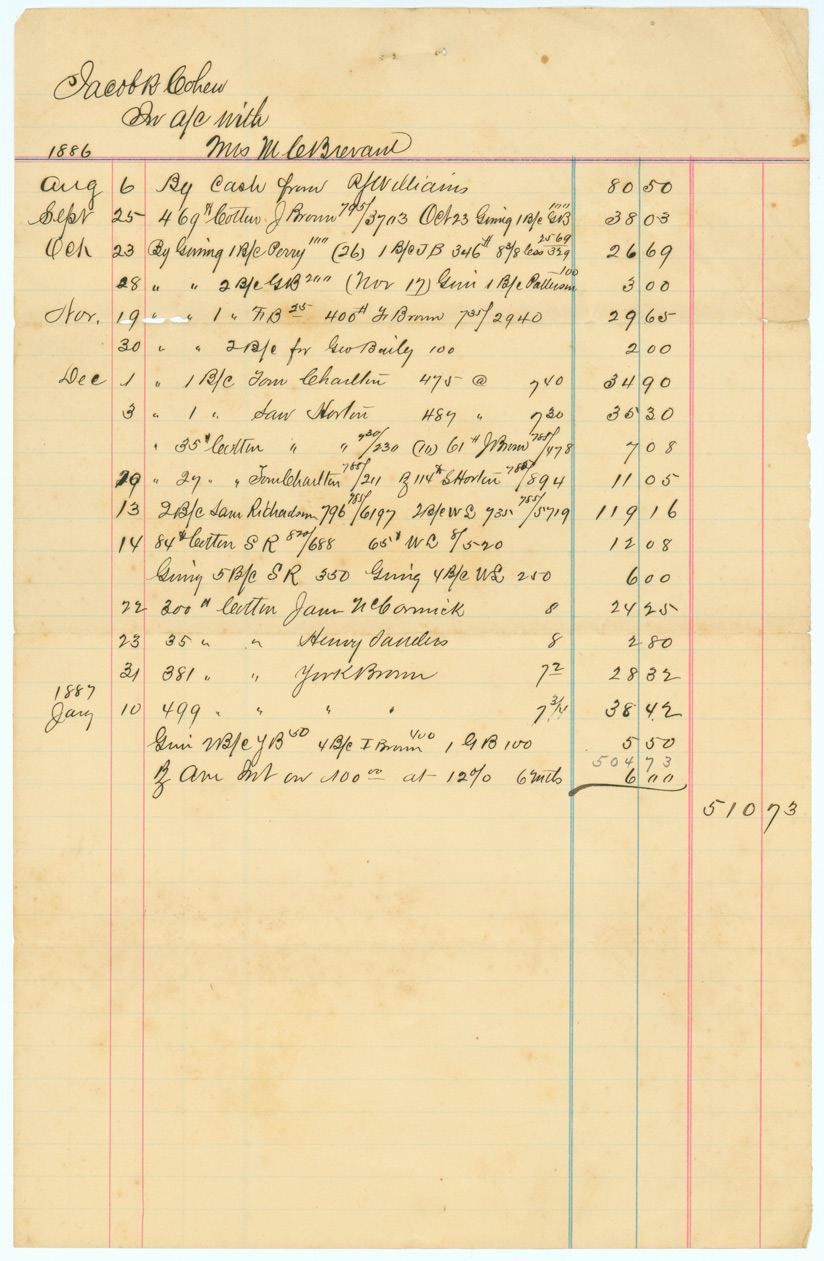 Jacob R Cohen
In a/c with
1886 Mrs M C Brevard
Aug 6 By Cash from R J Williams 80 50
Sept 25 469 # Cotton J Brown 795/3703 Oct 23 Gining 1 B/c GB 1 00 38 03
Oct 23 By Gining 1 B/c Perry 1 00 (26) 1 B/c J B 346 # 8 3/8 less 329 2569 26 69
28 " " 2 B/c GB 2 00 (Nov 17) Gini 1 B/c Patterson 100 3 00
Nov. 19 " " 1 " B 25 400 # Brown 735/2940 29 65
30 " " 2 B/c for Geo Baily 100 2 00
Dec 1 " 1 B/c Tom Charlton 475 @ 740 34 90
3 " 1 " Sam Horton 487 " 730 35 30
" 35 # Cotton " " 730/230 (10) 61 # J Brown 785/478 7 08
29 " 27 " " Tom Charlton 785/211 By 114 # S Horton 785/894 11 05
13 2 B/c Sam Richardson 796 785/6197 2 B/c W L 735 785/5719 119 16
14 84 # Cotton S R 820/688 65 # W L 8/520 12 08
Gining 5 B/c S R 350 Gining 4 B/c W L 250 6 00
22 300 # Cotton Jam McCormick 8 24 25
23 35 " " Henry Sanders 8 2 80
31 381 " " York Brown 7 2 28 32
1887
Jany 10 499 " " " " 7 3/4 38 42
Gini 2 B/c Y B 50 4 B/c I Brown 400 1 G B 100 5 50
504 73
By Ave Int on 100 00 at 12% 6 mts 6 00
510 73